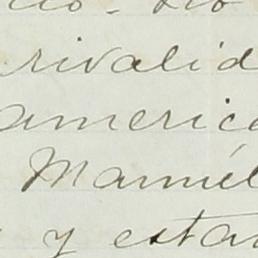 rivalid
americ
Manuel
y estan